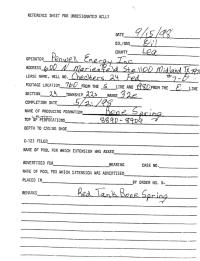 REFERENCE SHEET FOR UNDESIGNATED WELLS
DATE 9/15/98
OIL/GAS Oil
COUNTY Lea
OPERATOR Penwell Energy Inc
ADDRESS 600 N Marienfeld Ste 1100 Midland TX
LEASE NAME, WELL NO. Checkers 24 Fed
FOOTAGE LOCATION 760 FROM THE S LINE AND 1980 FROM THE E LINE
SECTION 24 TOWNSHIP 22s RANGE 32e
COMPLETION DATE 5/2/98
NAME OF PRODUCING FORMATION Bone Spring
TOP OF PERFORATIONS 8890-8904
DEPTH TO CASING SHOE
C-123 FILED
NAME OF POOL FOR WHICH EXTENSION WAS ASKED
ADVERTISED FOR HEARING CASE NO.
NAME OF POOL FOR WHICH EXTENSION WAS ADVERTISED
PLACED IN BY ORDER NO. R-
REMARKS Red Tank Bone Spring